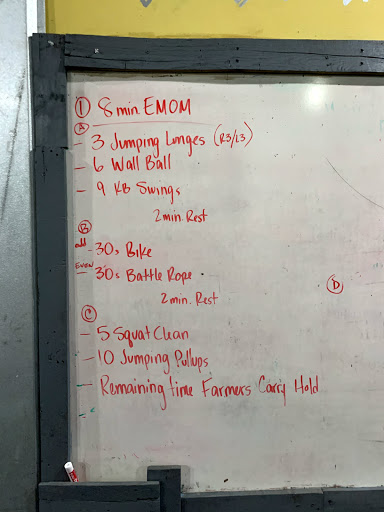 ① 8 min. EMOM
Ⓐ
- 3 Jumping Lunges (R3/L3)
- 6 Wall Ball
- 9 KB Swings
2 min. Rest
Ⓑ
odd - 30s Bike
Even - 30s Battle Rope
2 min. Rest
Ⓓ
Ⓒ
- 5 Squat Clean
- 10 Jumping Pullups
- Remaining time Farmers Carry Hold